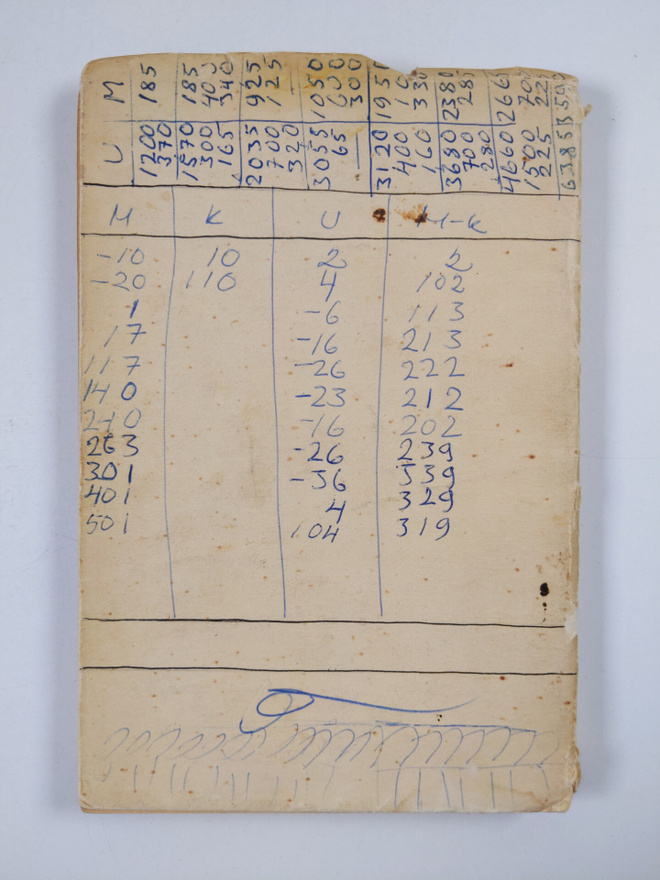 U M
1200 185
370
1570 185
300 400
165 340
2035 925
700 125
320
3055 1050
65 600
— 300
3120 1950
400 10
160 330
3680 2380
700 285
280
4660 2665
1500 700
225 225
6385 3590
M K U M-K
-10 10 2 2
-20 110 4 102
1 -6 113
17 -16 213
117 -26 222
140 -23 212
240 -16 202
263 -26 239
301 -36 339
401 4 329
501 104 319